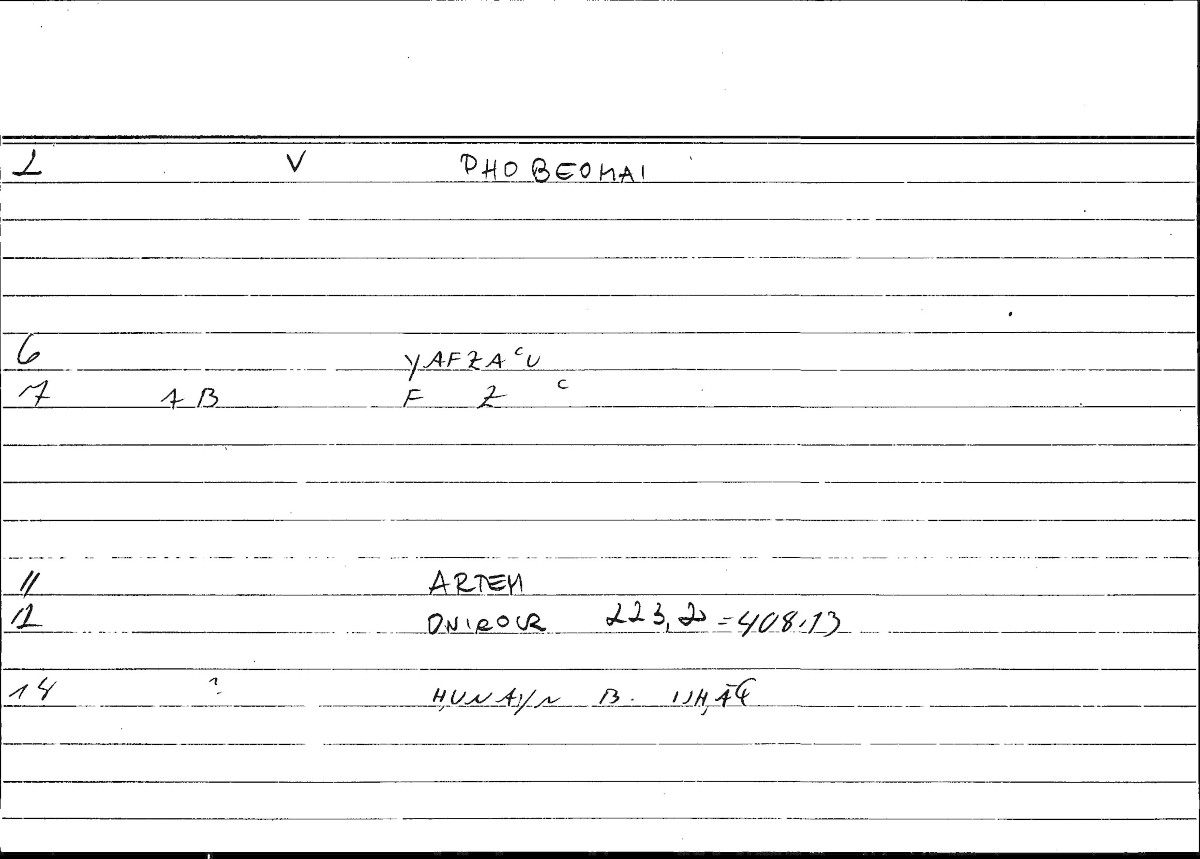 1 V PHOBEOMAI
6 YAFZAʿU
7 1 B F Z ʿ
11 ARTEM
12 ONIROCR 223,20 = 408.13
14 ? ḤUNAYN B. ISḤĀQ